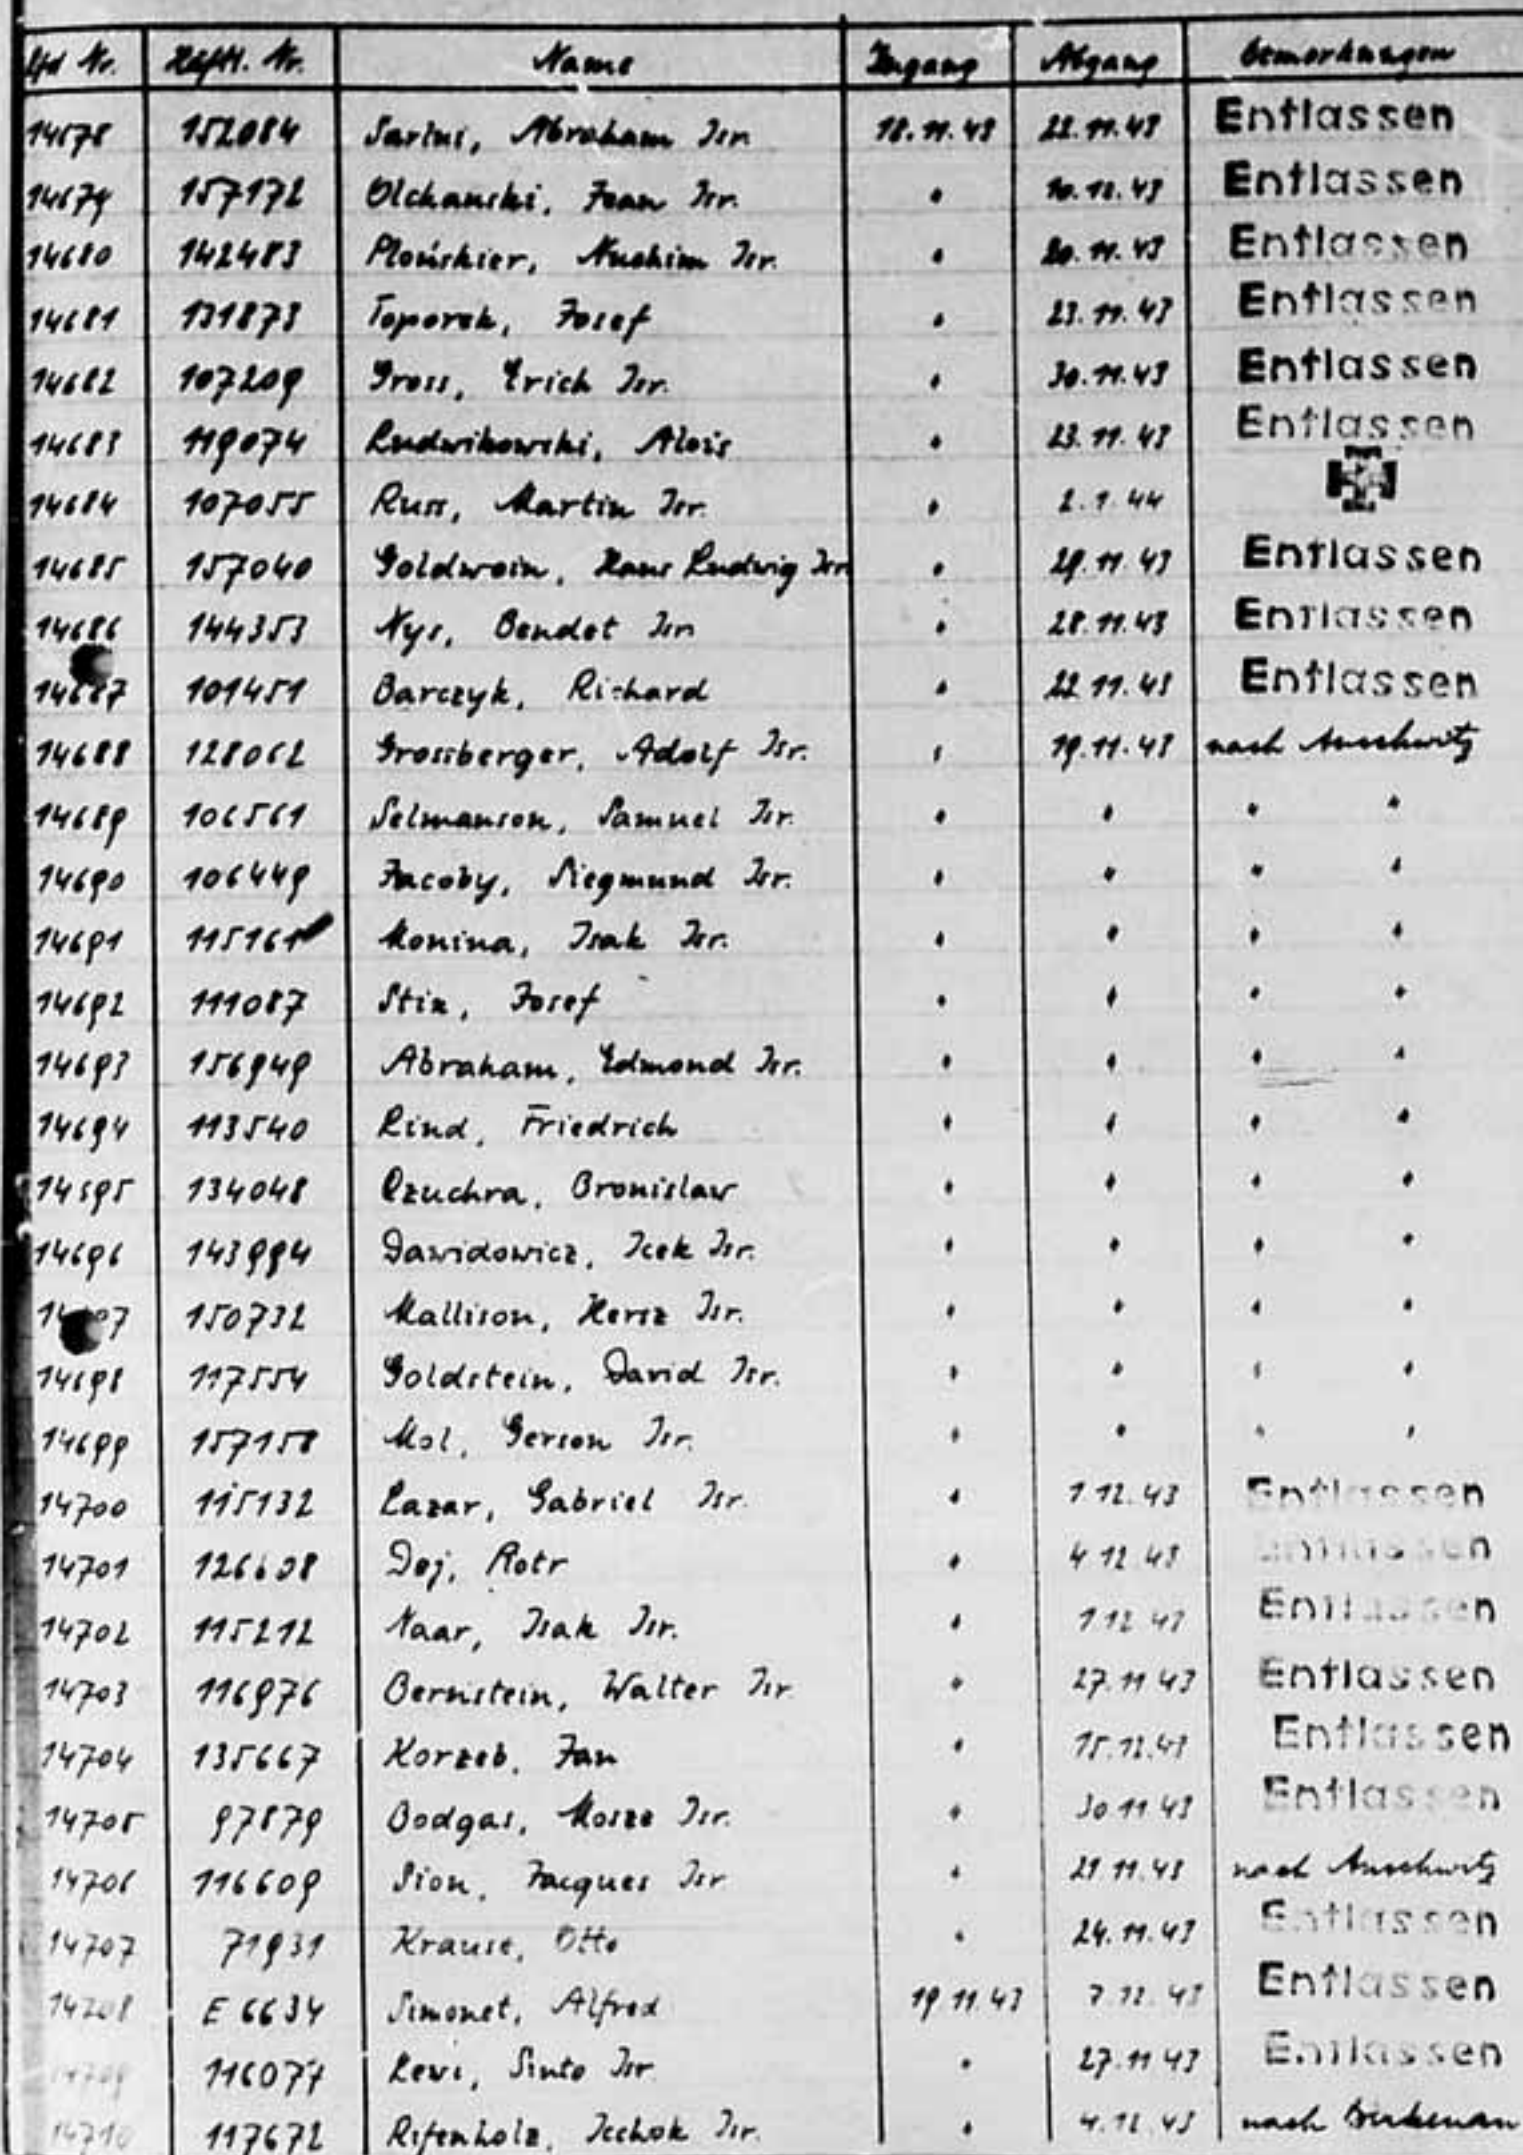 Lfd Nr. Häftl. Nr. Name Zugang Abgang Bemerkungen
14678 152084 Sarini, Abraham Isr. 18.11.43 22.11.43 Entlassen
14679 157172 Olchanski, Jean Isr. " 10.12.43 Entlassen
14680 142483 Płońskier, Nuchim Isr. " 20.11.43 Entlassen
14681 131873 Toporek, Josef " 23.11.43 Entlassen
14682 107209 Gross, Erich Isr. " 30.11.43 Entlassen
14683 119074 Ludwikowski, Alois " 23.11.43 Entlassen
14684 107055 Russ, Martin Isr. " 2.1.44
14685 157040 Goldwein, Hans Ludwig Isr. " 29.11.43 Entlassen
14686 144353 Nys, Bendet Isr. " 28.11.43 Entlassen
14687 101451 Barczyk, Richard " 22.11.43 Entlassen
14688 128062 Grossberger, Adolf Isr. " 19.11.43 nach Auschwitz
14689 106561 Selmanson, Samuel Isr. " " " "
14690 106449 Jacoby, Siegmund Isr. " " " "
14691 115161 Monina, Isak Isr. " " " "
14692 111087 Stix, Josef " " " "
14693 156949 Abraham, Edmond Isr. " " " "
14694 113540 Lind, Friedrich " " " "
14695 134048 Czuchra, Bronislaw " " " "
14696 143994 Dawidowicz, Icek Isr. " " " "
14697 150732 Mallison, Hersz Isr. " " " "
14698 117554 Goldstein, David Isr. " " " "
14699 157158 Mol, Gerson Isr. " " " "
14700 115132 Lazar, Gabriel Isr. " 1.12.43 Entlassen
14701 126608 Dej, Piotr " 4.12.43 Entlassen
14702 115212 Naar, Isak Isr. " 1.12.43 Entlassen
14703 116976 Bernstein, Walter Isr. " 27.11.43 Entlassen
14704 135667 Korzeb, Jan " 15.12.43 Entlassen
14705 97879 Bodgas, Mosze Isr. " 30.11.43 Entlassen
14706 116609 Sion, Jacques Isr. " 21.11.43 nach Auschwitz
14707 71931 Krause, Otto " 24.11.43 Entlassen
14708 E 6634 Simonet, Alfred 19.11.43 7.12.43 Entlassen
14709 116077 Lewi, Sinto Isr. " 27.11.43 Entlassen
14710 117672 Rifenholz, Icchok Isr. " 4.12.43 nach Birkenau